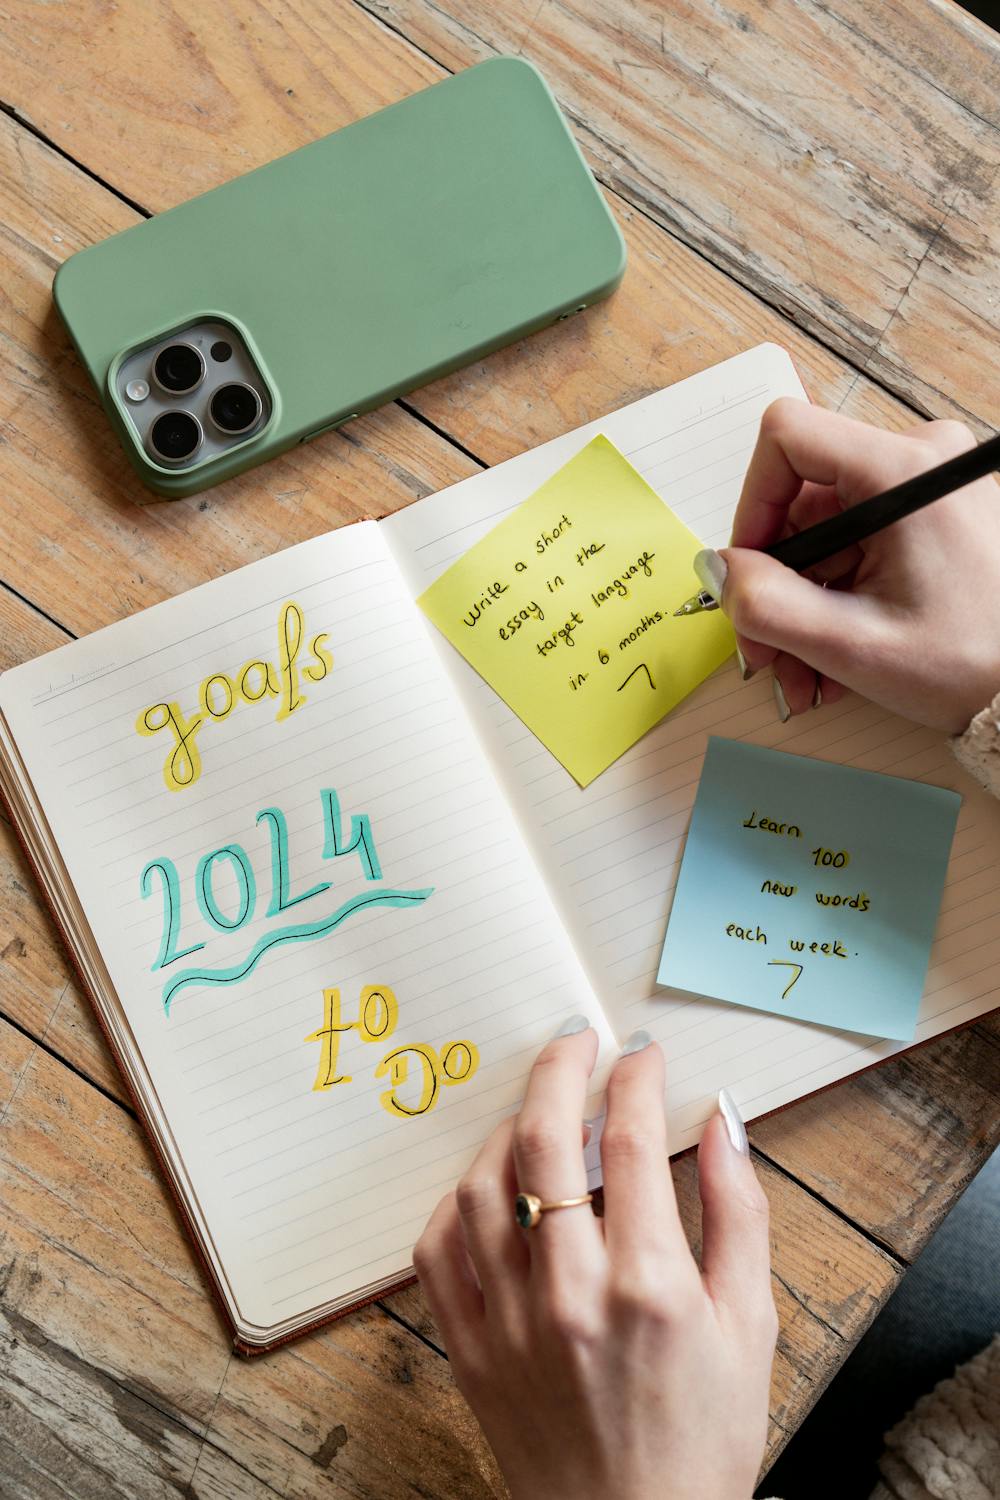 goals
2024
to
Do
Write a short
essay in the
target language
in 6 months.
Learn
100
new words
each week.